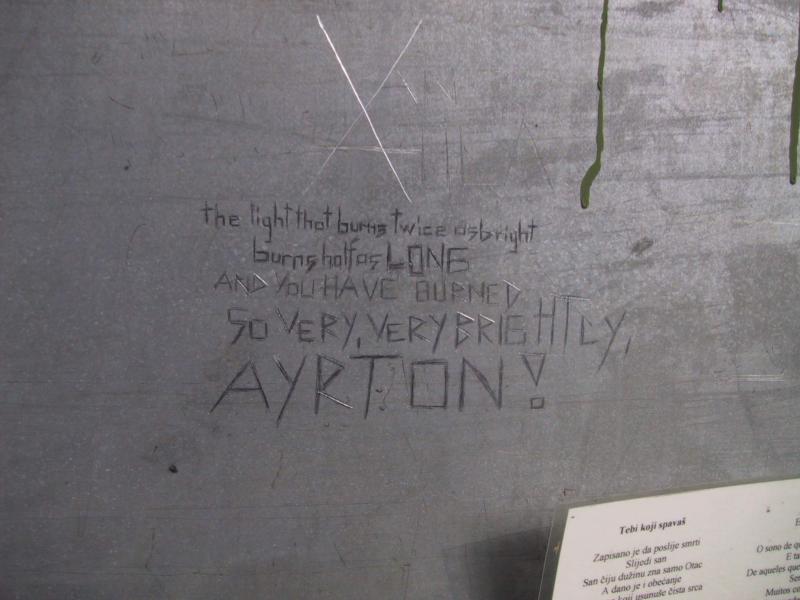 the light that burns twice as bright
burns half as LONG
AND YOU HAVE BURNED
SO VERY, VERY BRIGHTLY,
AYRTON!
Tebi koji spavaš
Zapisano je da poslije smrti
Slijedi san
San čiju dužinu zna samo Otac
A dano je i obećanje
koji usunuše čista srca
O sono de
E
De aqueles que
Muitos